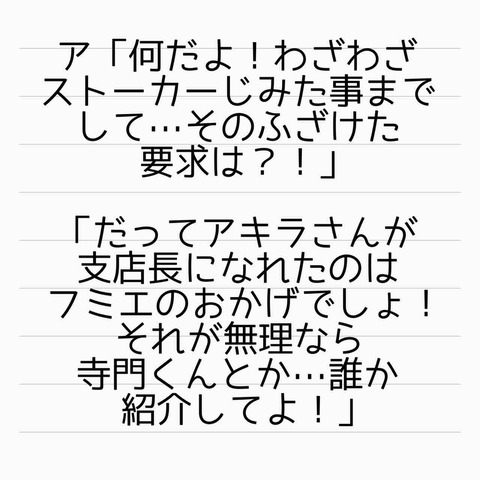 ア「何だよ！わざわざ
ストーカーじみた事まで
して…そのふざけた
要求は？！」
「だってアキラさんが
支店長になれたのは
フミエのおかげでしょ！
それが無理なら
寺門くんとか…誰か
紹介してよ！」